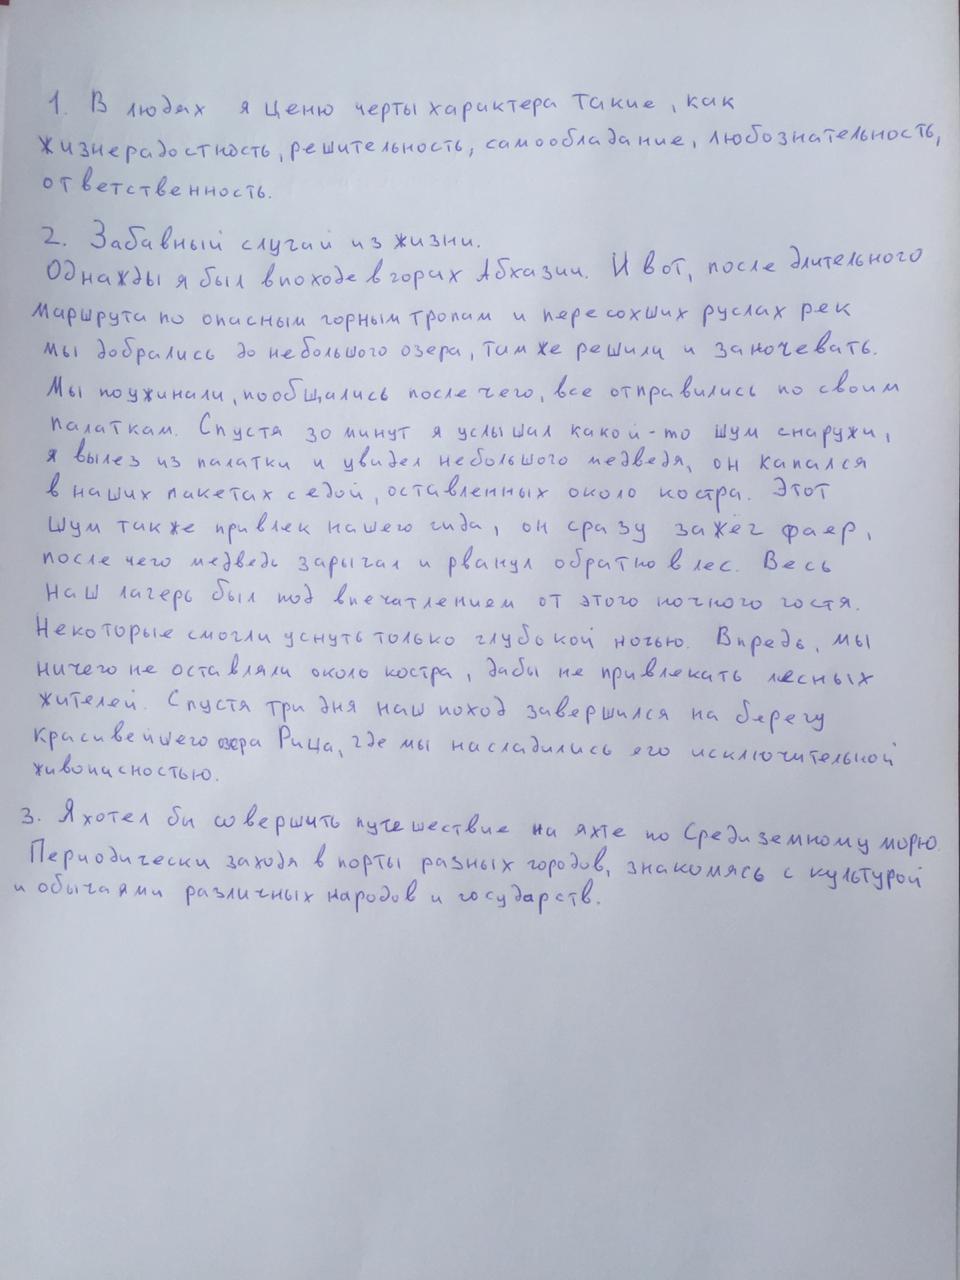 1. В людях я ценю черты характера такие, как
жизнерадостность, решительность, самообладание, любознательность,
ответственность.
2. Забавный случай из жизни.
Однажды я был в походе в горах Абхазии. И вот, после длительного
маршрута по опасным горным тропам и пересохших руслах рек
мы добрались до небольшого озера, там же решили и заночевать.
Мы поужинали, пообщались после чего, все отправились по своим
палаткам. Спустя 30 минут я услышал какой-то шум снаружи,
я вылез из палатки и увидел небольшого медведя, он капался
в наших пакетах с едой, оставленных около костра. Этот
шум также привлек нашего гида, он сразу зажёг фаер,
после чего медведь зарычал и рванул обратно в лес. Весь
наш лагерь был под впечатлением от этого ночного гостя.
Некоторые смогли уснуть только глубокой ночью. Впредь, мы
ничего не оставляли около костра, дабы не привлекать лесных
жителей. Спустя три дня наш поход завершился на берегу
красивейшего озера Рица, где мы насладились его исключительной
живописностью.
3. Я хотел бы совершить путешествие на яхте по Средиземному морю.
Периодически заходя в порты разных городов, знакомясь с культурой
и обычаями различных народов и государств.